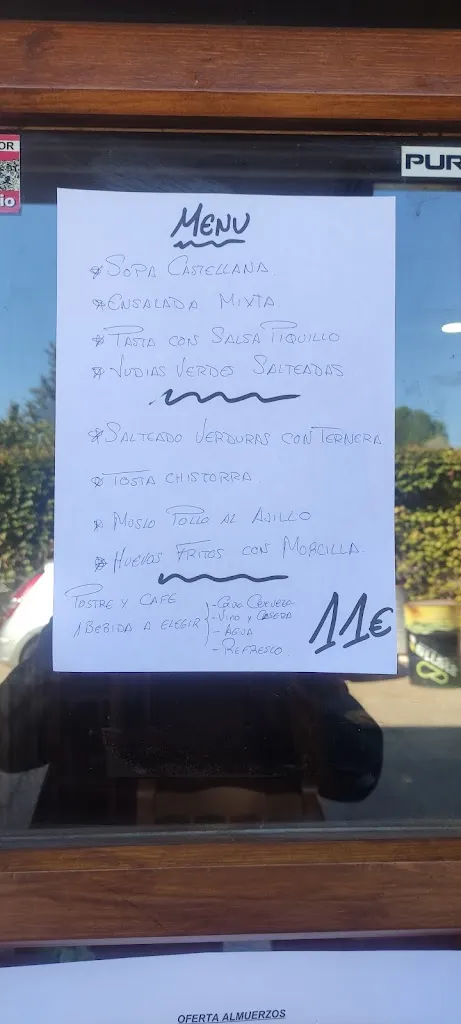 OR
io
PUR
MENU
* SOPA CASTELLANA.
* ENSALADA MIXTA
* PASTA CON SALSA PIQUILLO
* JUDIAS VERDES SALTEADAS
* SALTEADO VERDURAS CON TERNERA
* TOSTA CHISTORRA.
* MUSLO POLLO AL AJILLO
* HUEVOS FRITOS CON MORCILLA.
POSTRE Y CAFE
1 BEBIDA A ELEGIR
- CAÑA CERVEZA
- VINO Y CASERA
- AGUA
- REFRESCO.
11€
OFERTA ALMUERZOS